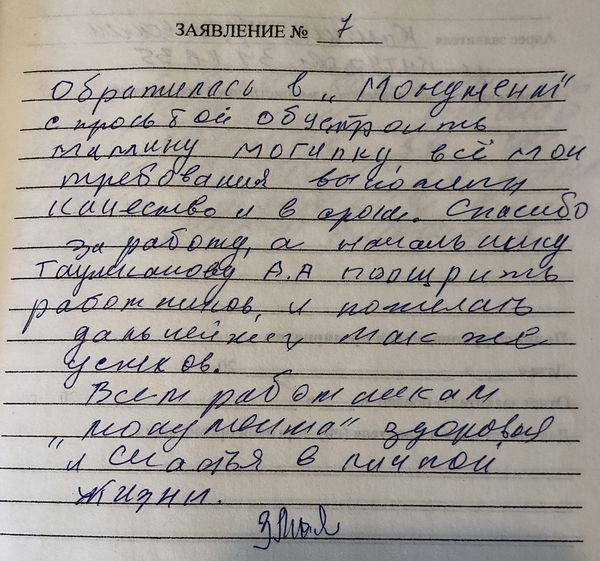 ЗАЯВЛЕНИЕ № 7
Обратилась в „Монумент"
с просьбой обустроить
мамину могилку всё мои
требования выполнены
качество и в срок. Спасибо
за работу, а начальнику
А.А поощрить
работников, и пожелать
дальнейших так же
успехов.
Всем работникам
„монумента" здоровья
и счастья в личной
жизни.